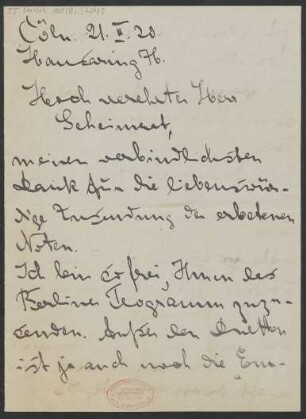 Cöln 21. II. 20.
Hansaring 76.
Hoch verehrter Herr
Geheimrat,
meinen verbindlichsten
Dank für die liebenswür-
dige Zusendung der erbetenen
Noten.
Ich bin so frei, Ihnen das
Berliner Programm zuzu-
senden. Außer den Duetten
ist ja auch noch die